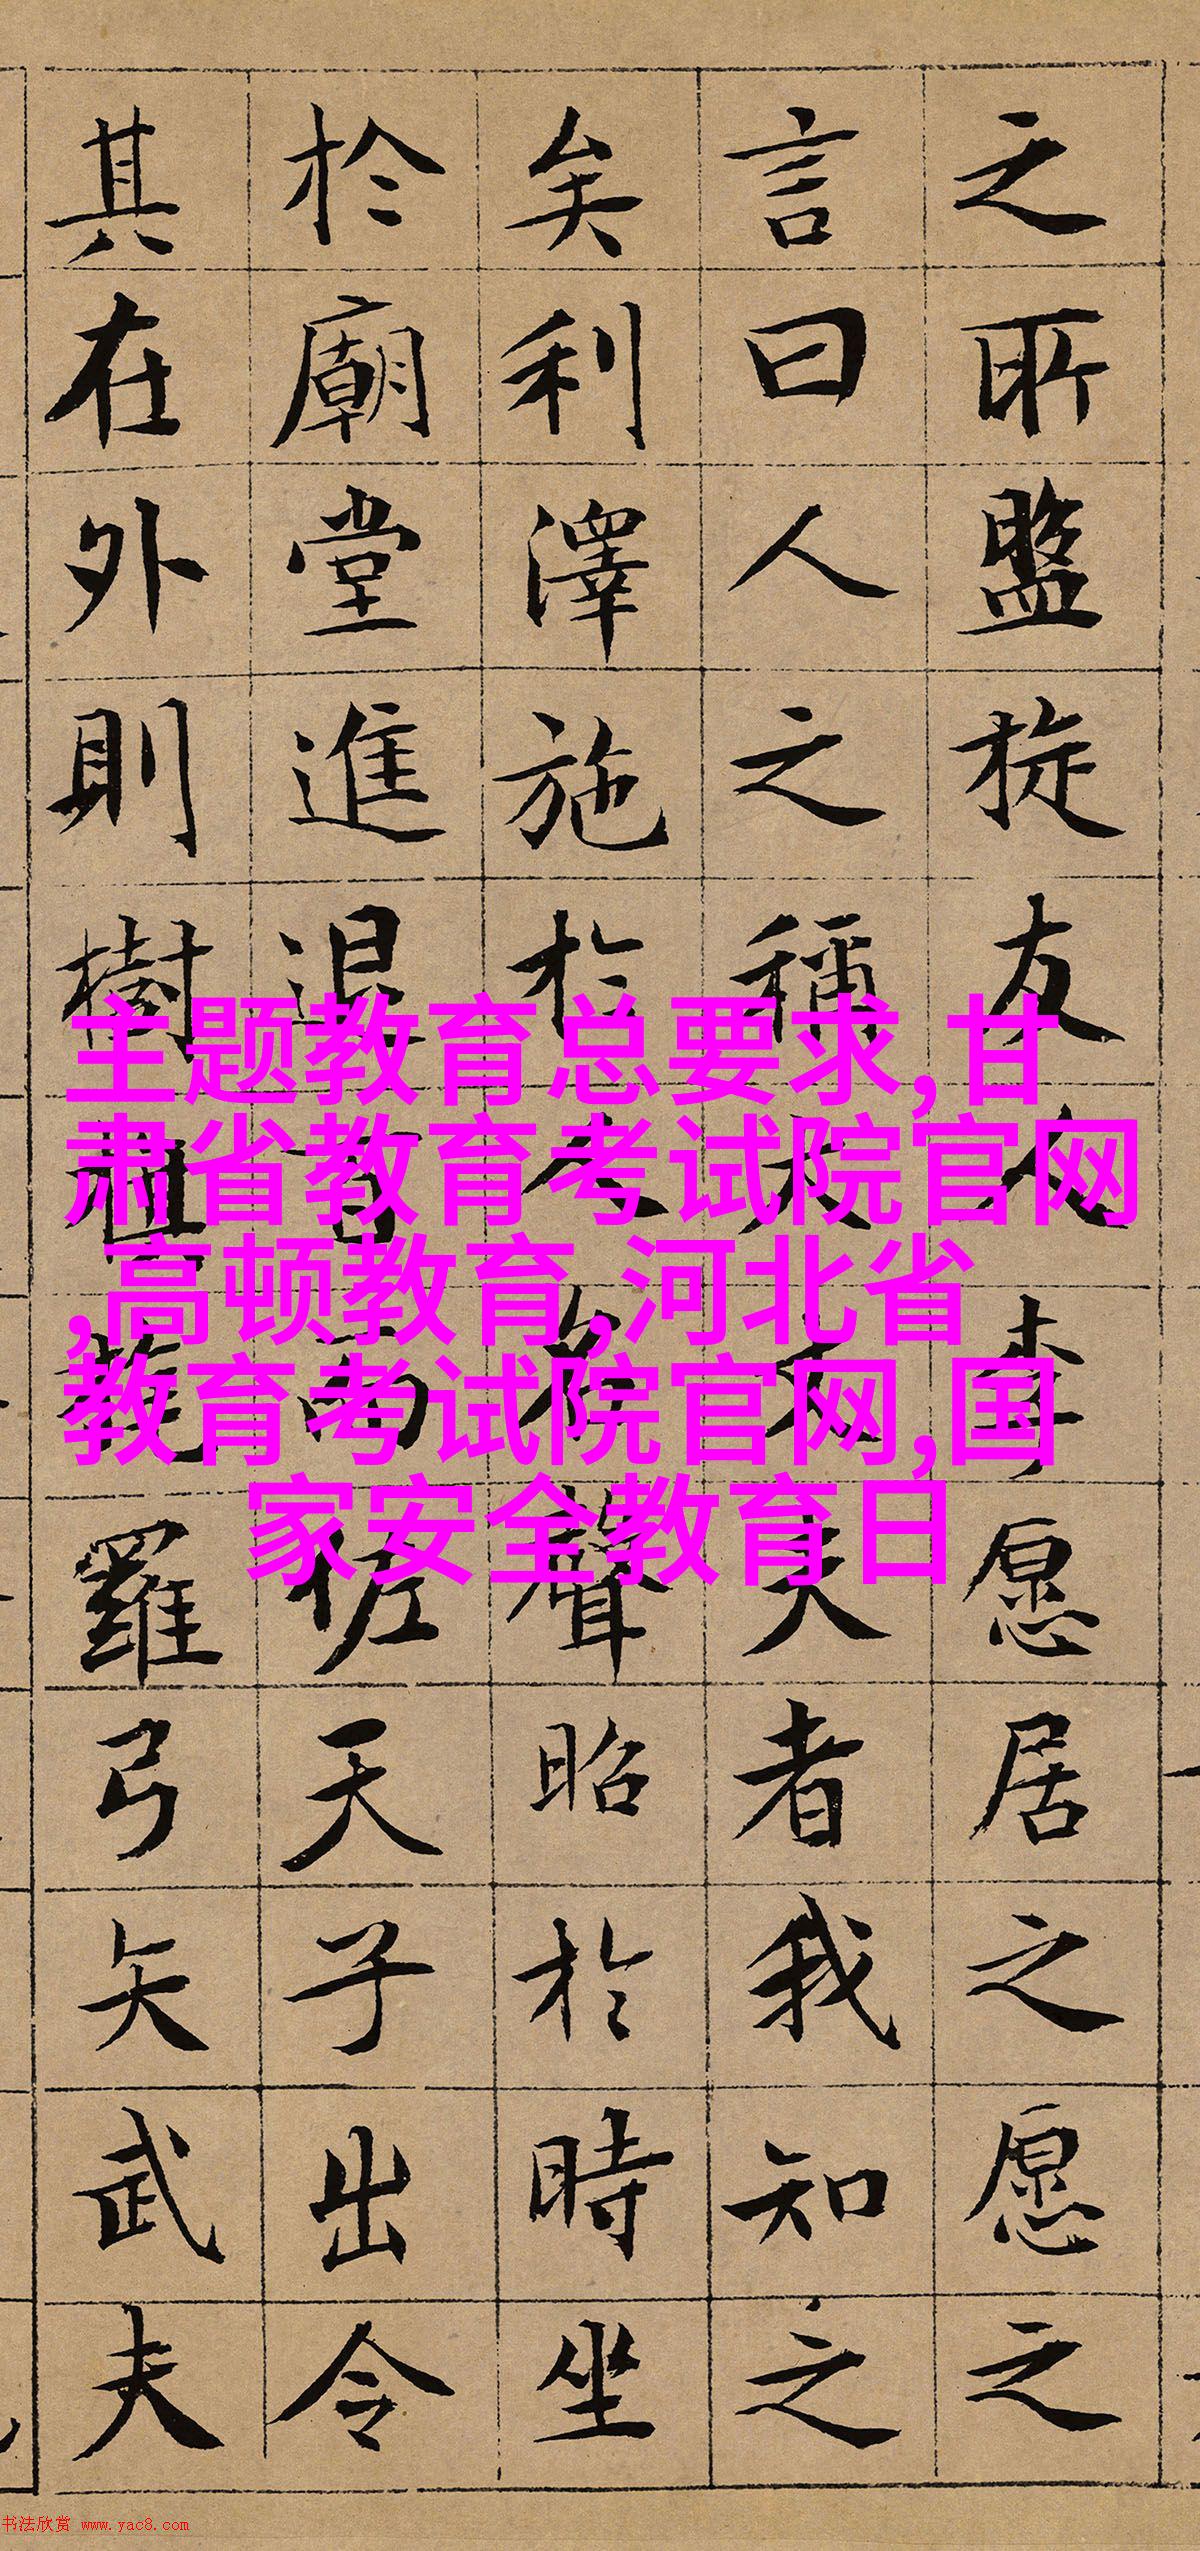 之所盤旋友人李愿居之愿之
言曰人之稱大丈夫者我知之
矣利澤施於人名聲昭於時坐
於廟堂進退百而佐天子出令
其在外則樹旄羅弓矢武夫
主题教育总要求,甘
肃省教育考试院官网
,高顿教育,河北省
教育考试院官网,国
家安全教育日
书法欣赏 www.yac8.com